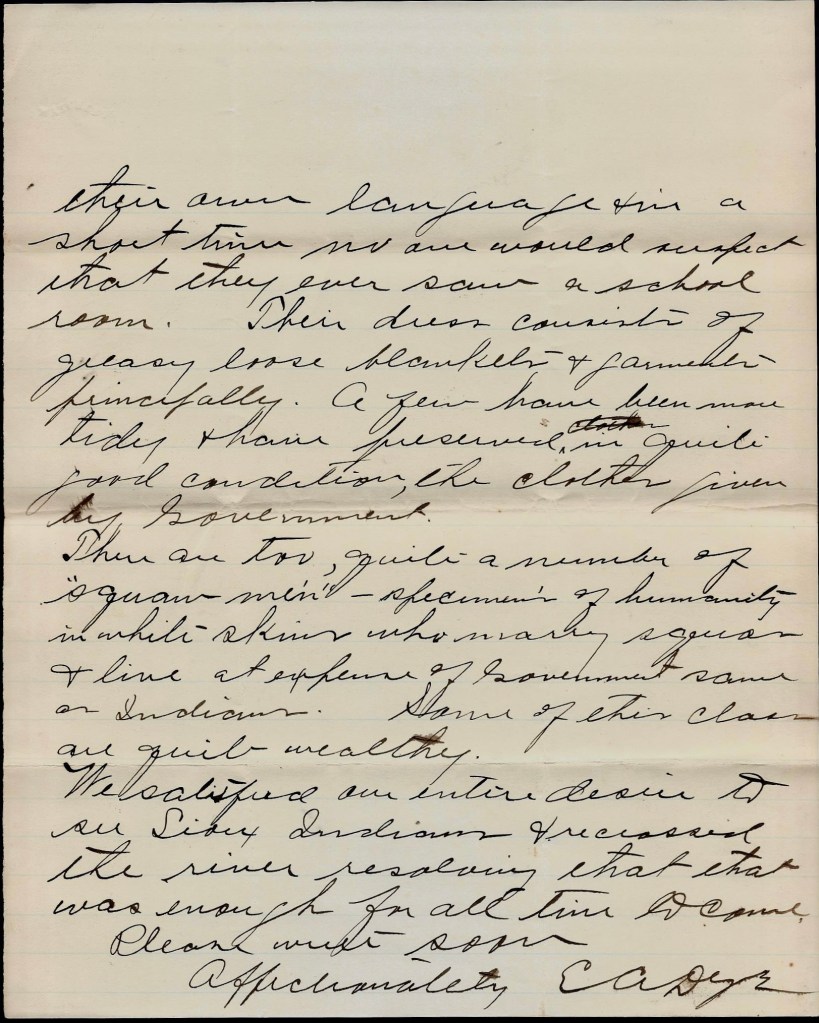 their own language & in a
short time no one would suspect
that they ever saw a school
room. Their dress consists of
greasy loose blankets & garments
principally. A few have been more
tidy & have preserved, in quite
good condition, the clothes given
by Government.
There are too, quite a number of
"squaw men" - specimens of humanity
in white skins who marry squaws
& live at expense of Government same
as Indians. Some of this class
are quite wealthy.
We satisfied our entire desire to
see Sioux Indians & recrossed
the river resolving that that
was enough for all time to come.
Please write soon
Affectionately E A